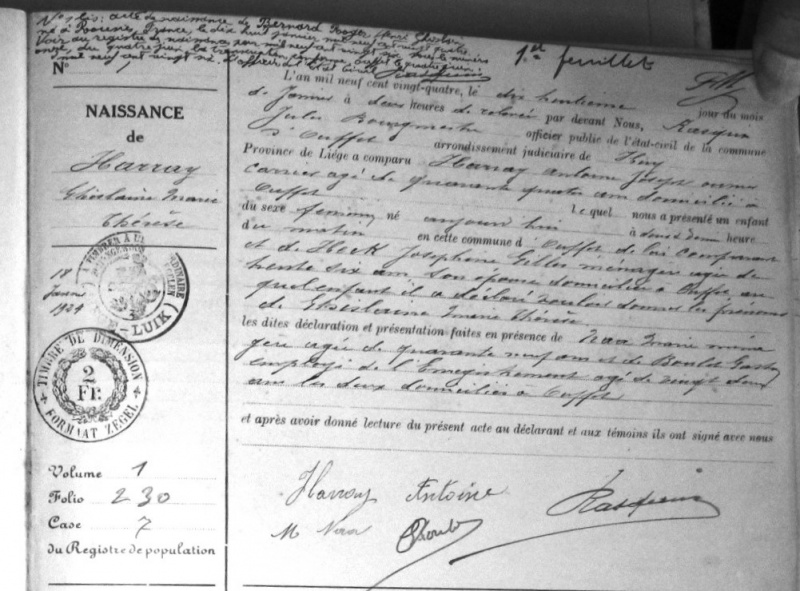 N° 1 bis : acte de naissance de Bernard Roger
né à France, le dix huit janvier mil neuf cent vingt quatre.
Voir au registre de naissance pour mil neuf cent vingt six sous le numéro
onze, du quatre juin
mil neuf cent vingt six. L'officier de l'état civil
1er feuillet
N° 1
NAISSANCE
de
Harray
Ghislaine Marie
Thérèse
18
Janvier
1924
LUIK
TIMBRE DE DIMENSION
2
Fr.
FORMAAT ZEGEL
Volume 1
Folio 230
Case 7
du Registre de population
L'an mil neuf cent vingt-quatre, le dix huitième jour du mois
de Janvier à deux heures de relevée par devant Nous, Rasquin
Jules Bourgmestre officier public de l'état-civil de la commune
d'Ouffet arrondissement judiciaire de Huy
Province de Liège a comparu Harray Antoine Joseph ouvrier
carrier agé de quarante quatre ans domicilié à
Ouffet Lequel nous a présenté un enfant
du sexe féminin, né aujourd'hui à heure
du matin en cette commune d'Ouffet de lui comparant
et de Heck Joséphine ménagère agée de
trente six ans son épouse domiciliée à Ouffet au
quel enfant il a déclaré vouloir donner les prénoms
de Ghislaine Marie Thérèse.
les dites déclaration et présentation faites en présence de Marie ména
gère agée de quarante neuf ans et de Boulet Gaston
employé de l'Enregistrement agé de vingt deux
ans les deux domiciliés à Ouffet
et après avoir donné lecture du présent acte au déclarant et aux témoins ils ont signé avec nous
Harray Antoine Rasquin
M